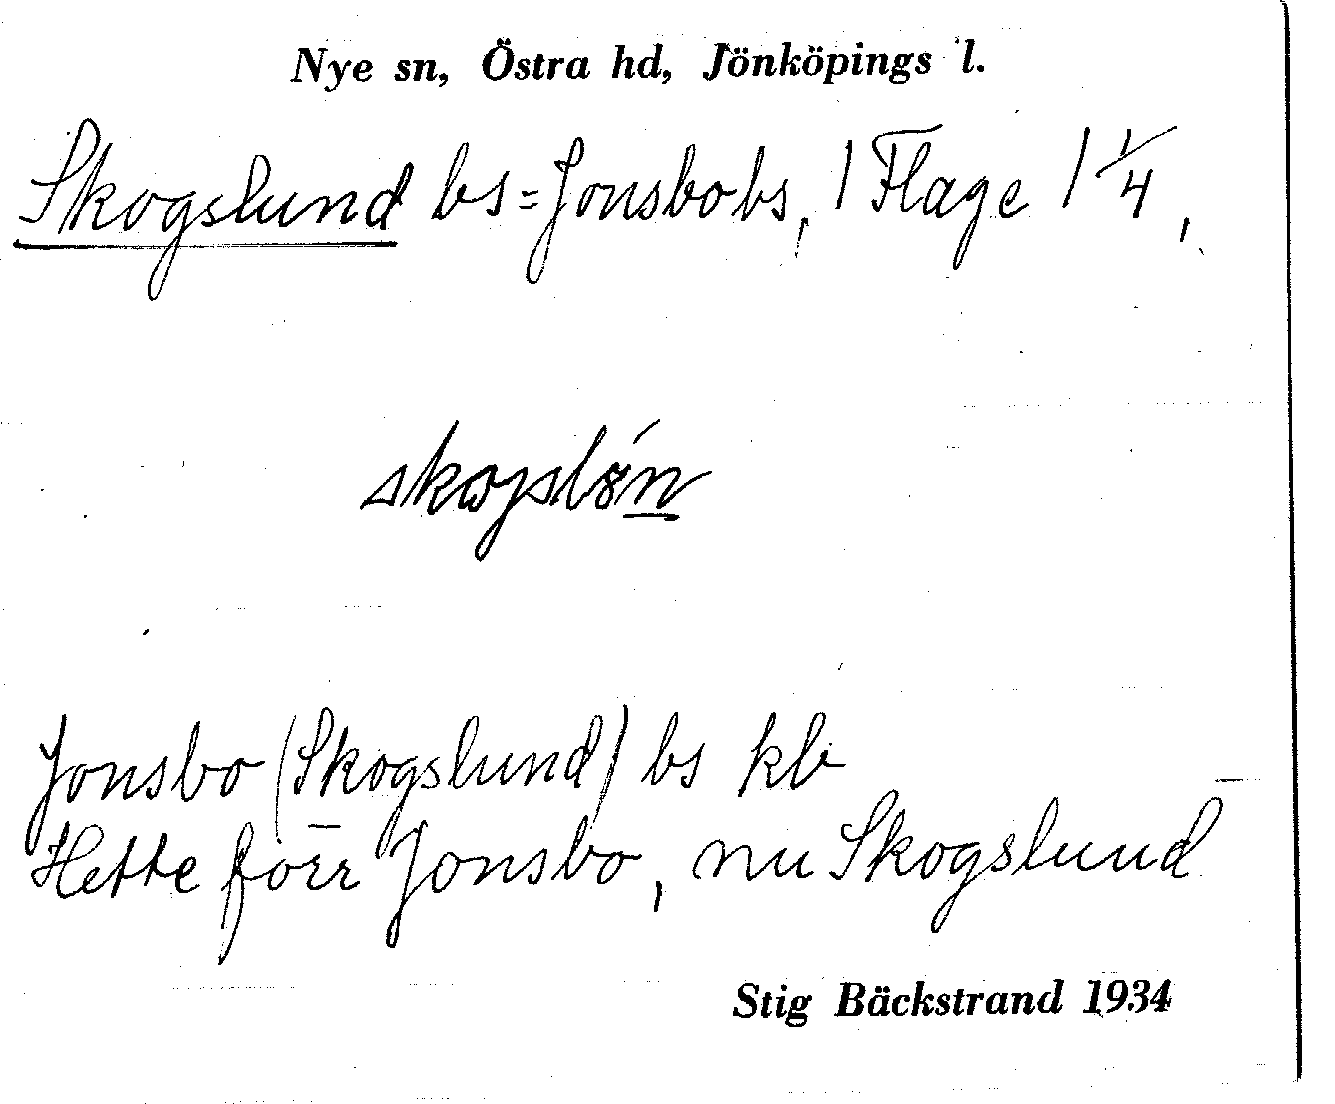 Nye sn, Östra hd, Jönköpings l.
Skogslund bs = Jonsbo bs, / Flage / 1/4,
skogslón
Jonsbo (Skogslund) bs kb
Hette förr Jonsbo, nu Skogslund
Stig Bäckstrand 1934